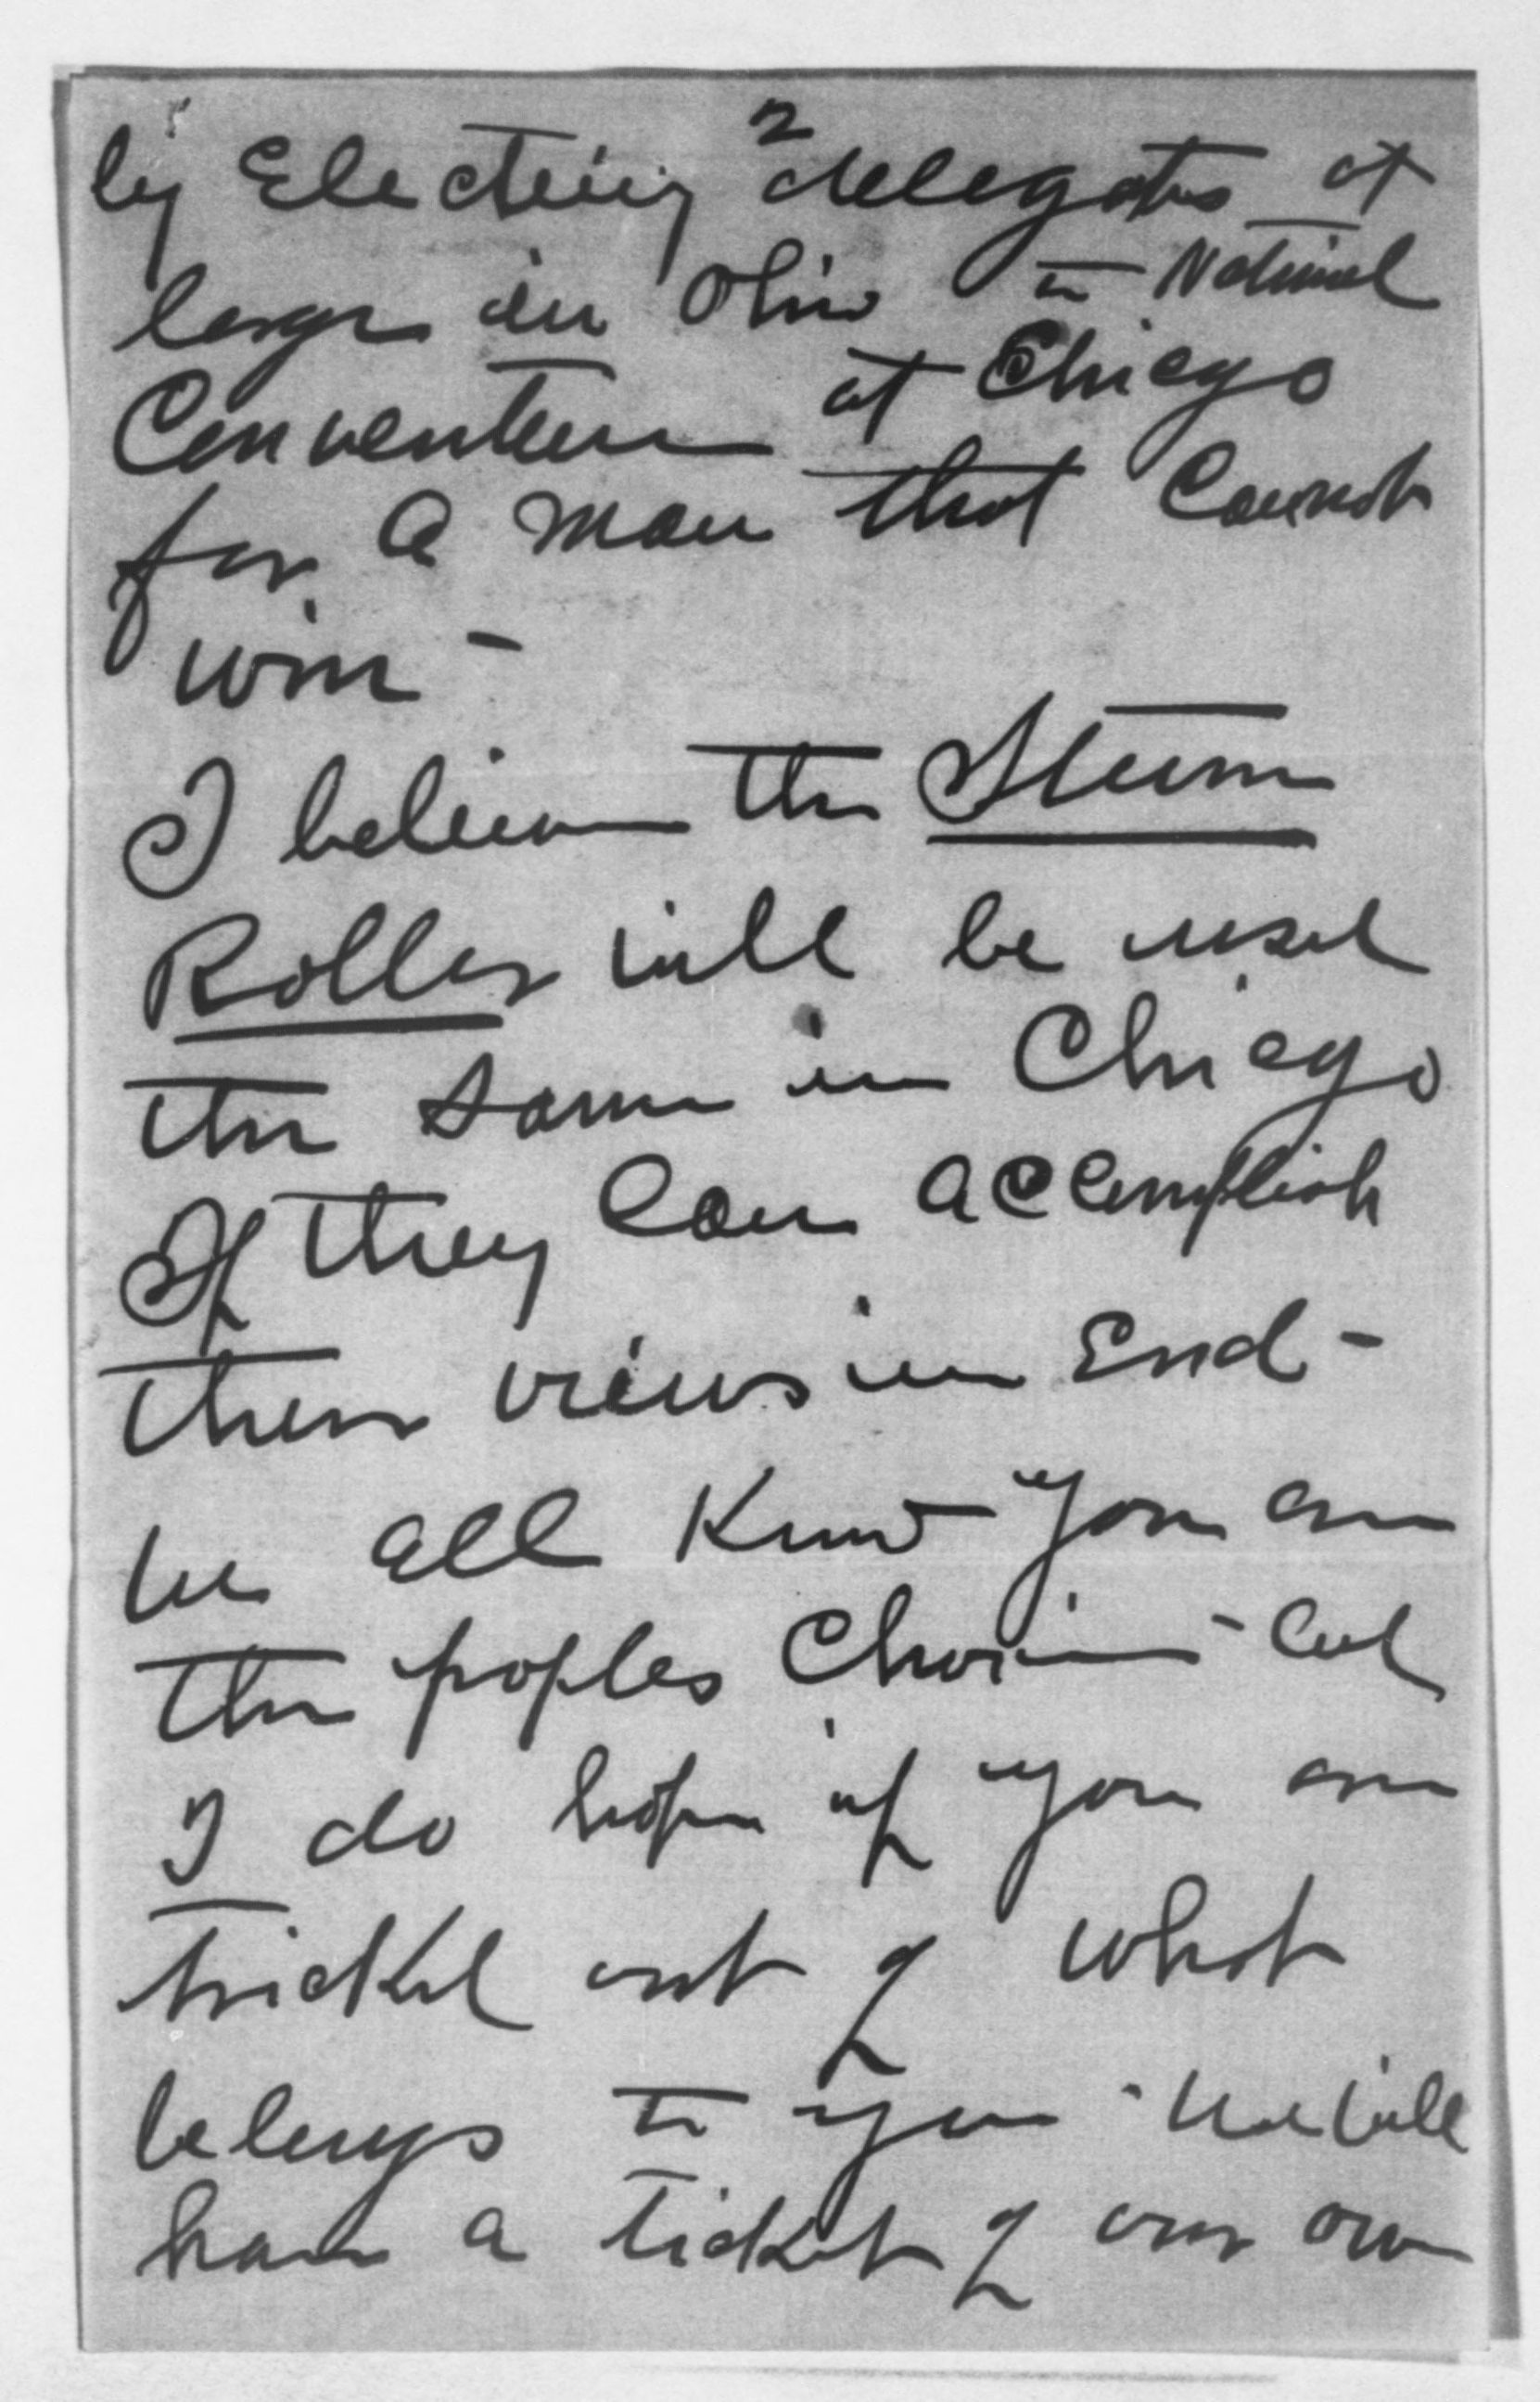 2
by Electing delegates at
large in Ohio to National
Convention at Chicago
for a man that Cannot
win -
I believe the Steem
Roller will be used
the same in Chicago
If they Can accomplish
their views in End -
We all Know you are
the peoples Choice -
I do hope if you are
tricked out of what
belongs to you - We will
have a ticket of our own